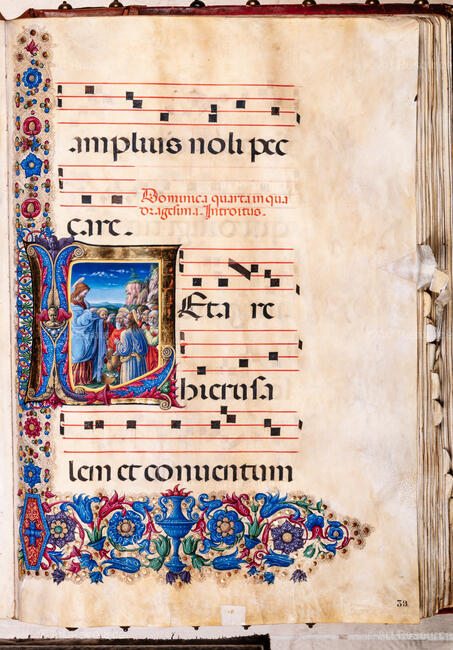 amplius noli pec
Dominica quarta in qua
dragesima. Introitus.
care.
LEta re
hierusa
lem et conuentum
39